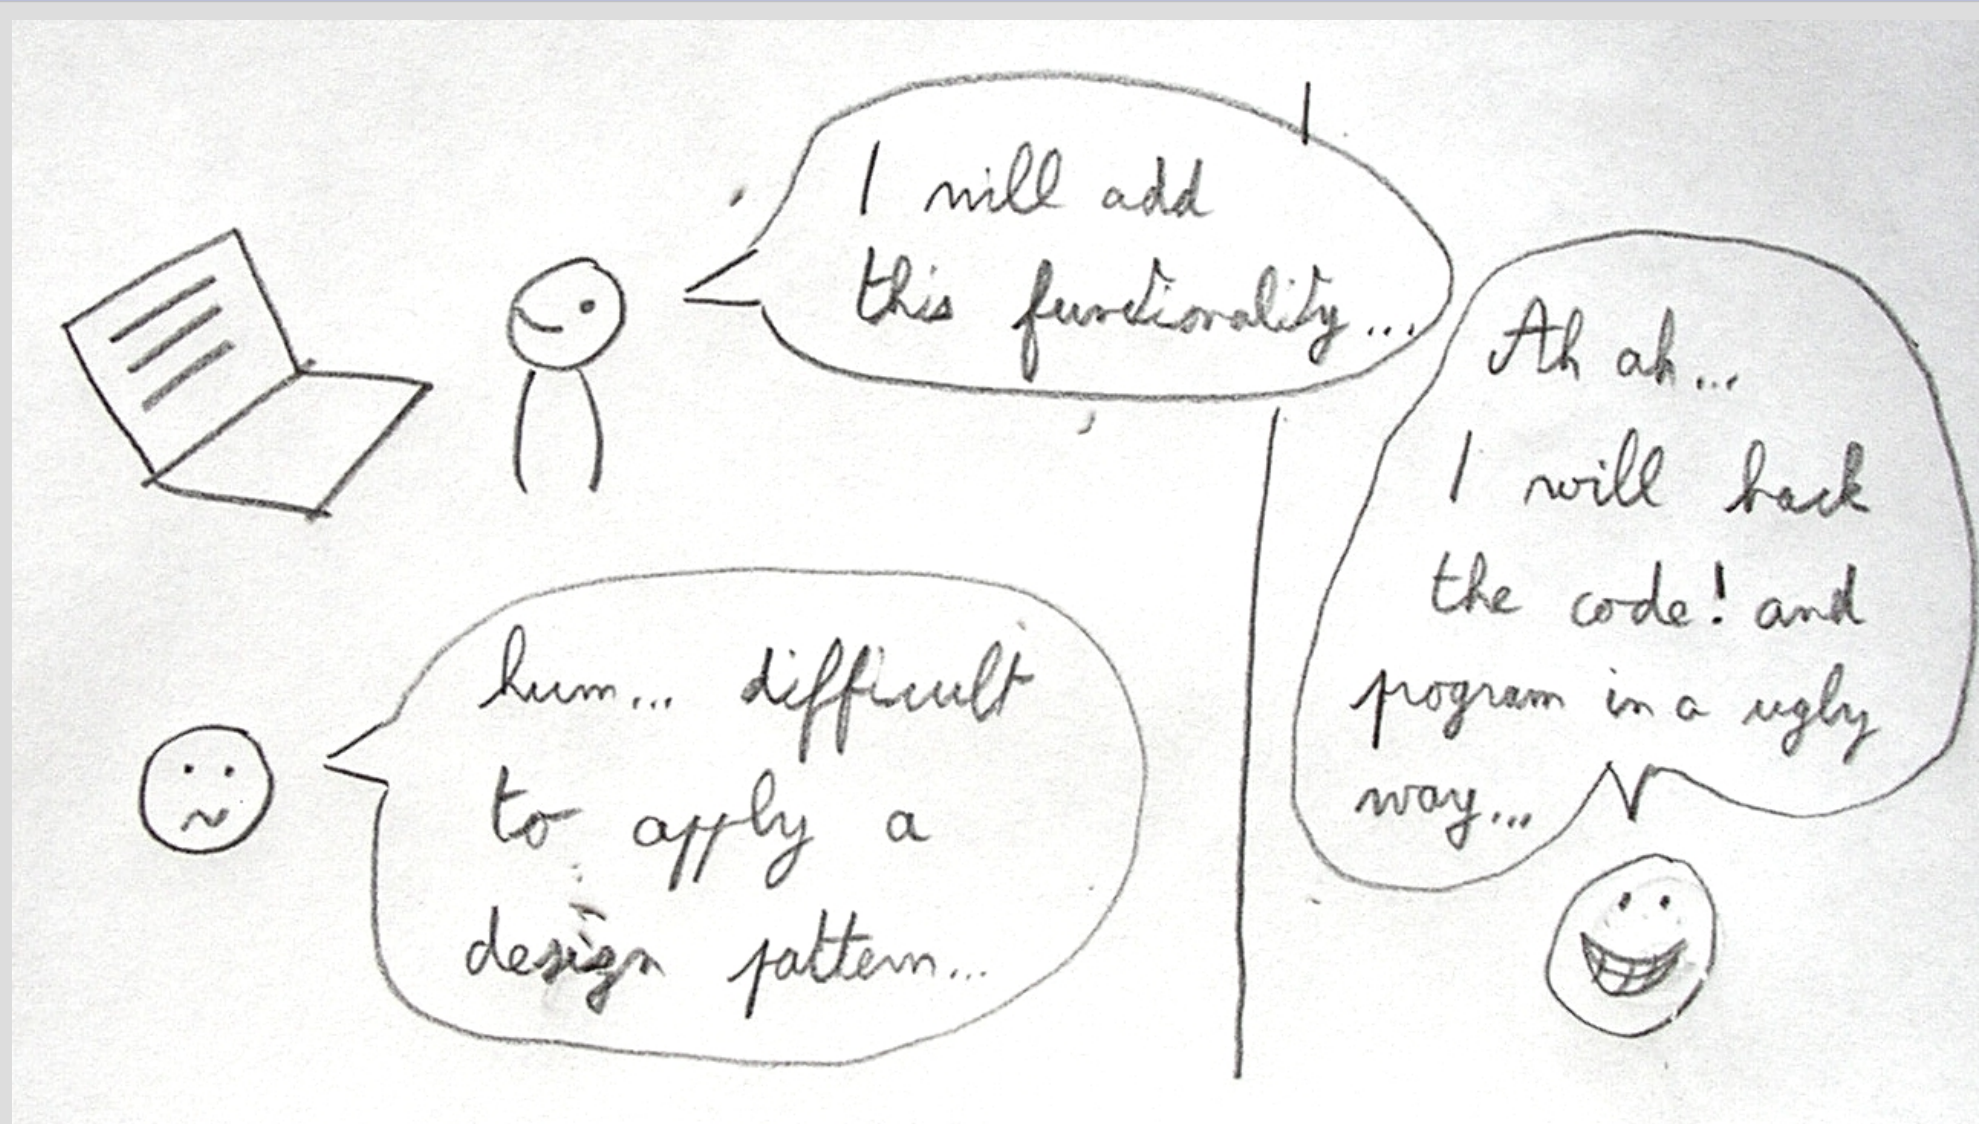 I will add
this functionality...
hum... difficult
to apply a
design pattern...
Ah ah...
I will hack
the code! and
program in a ugly
way...